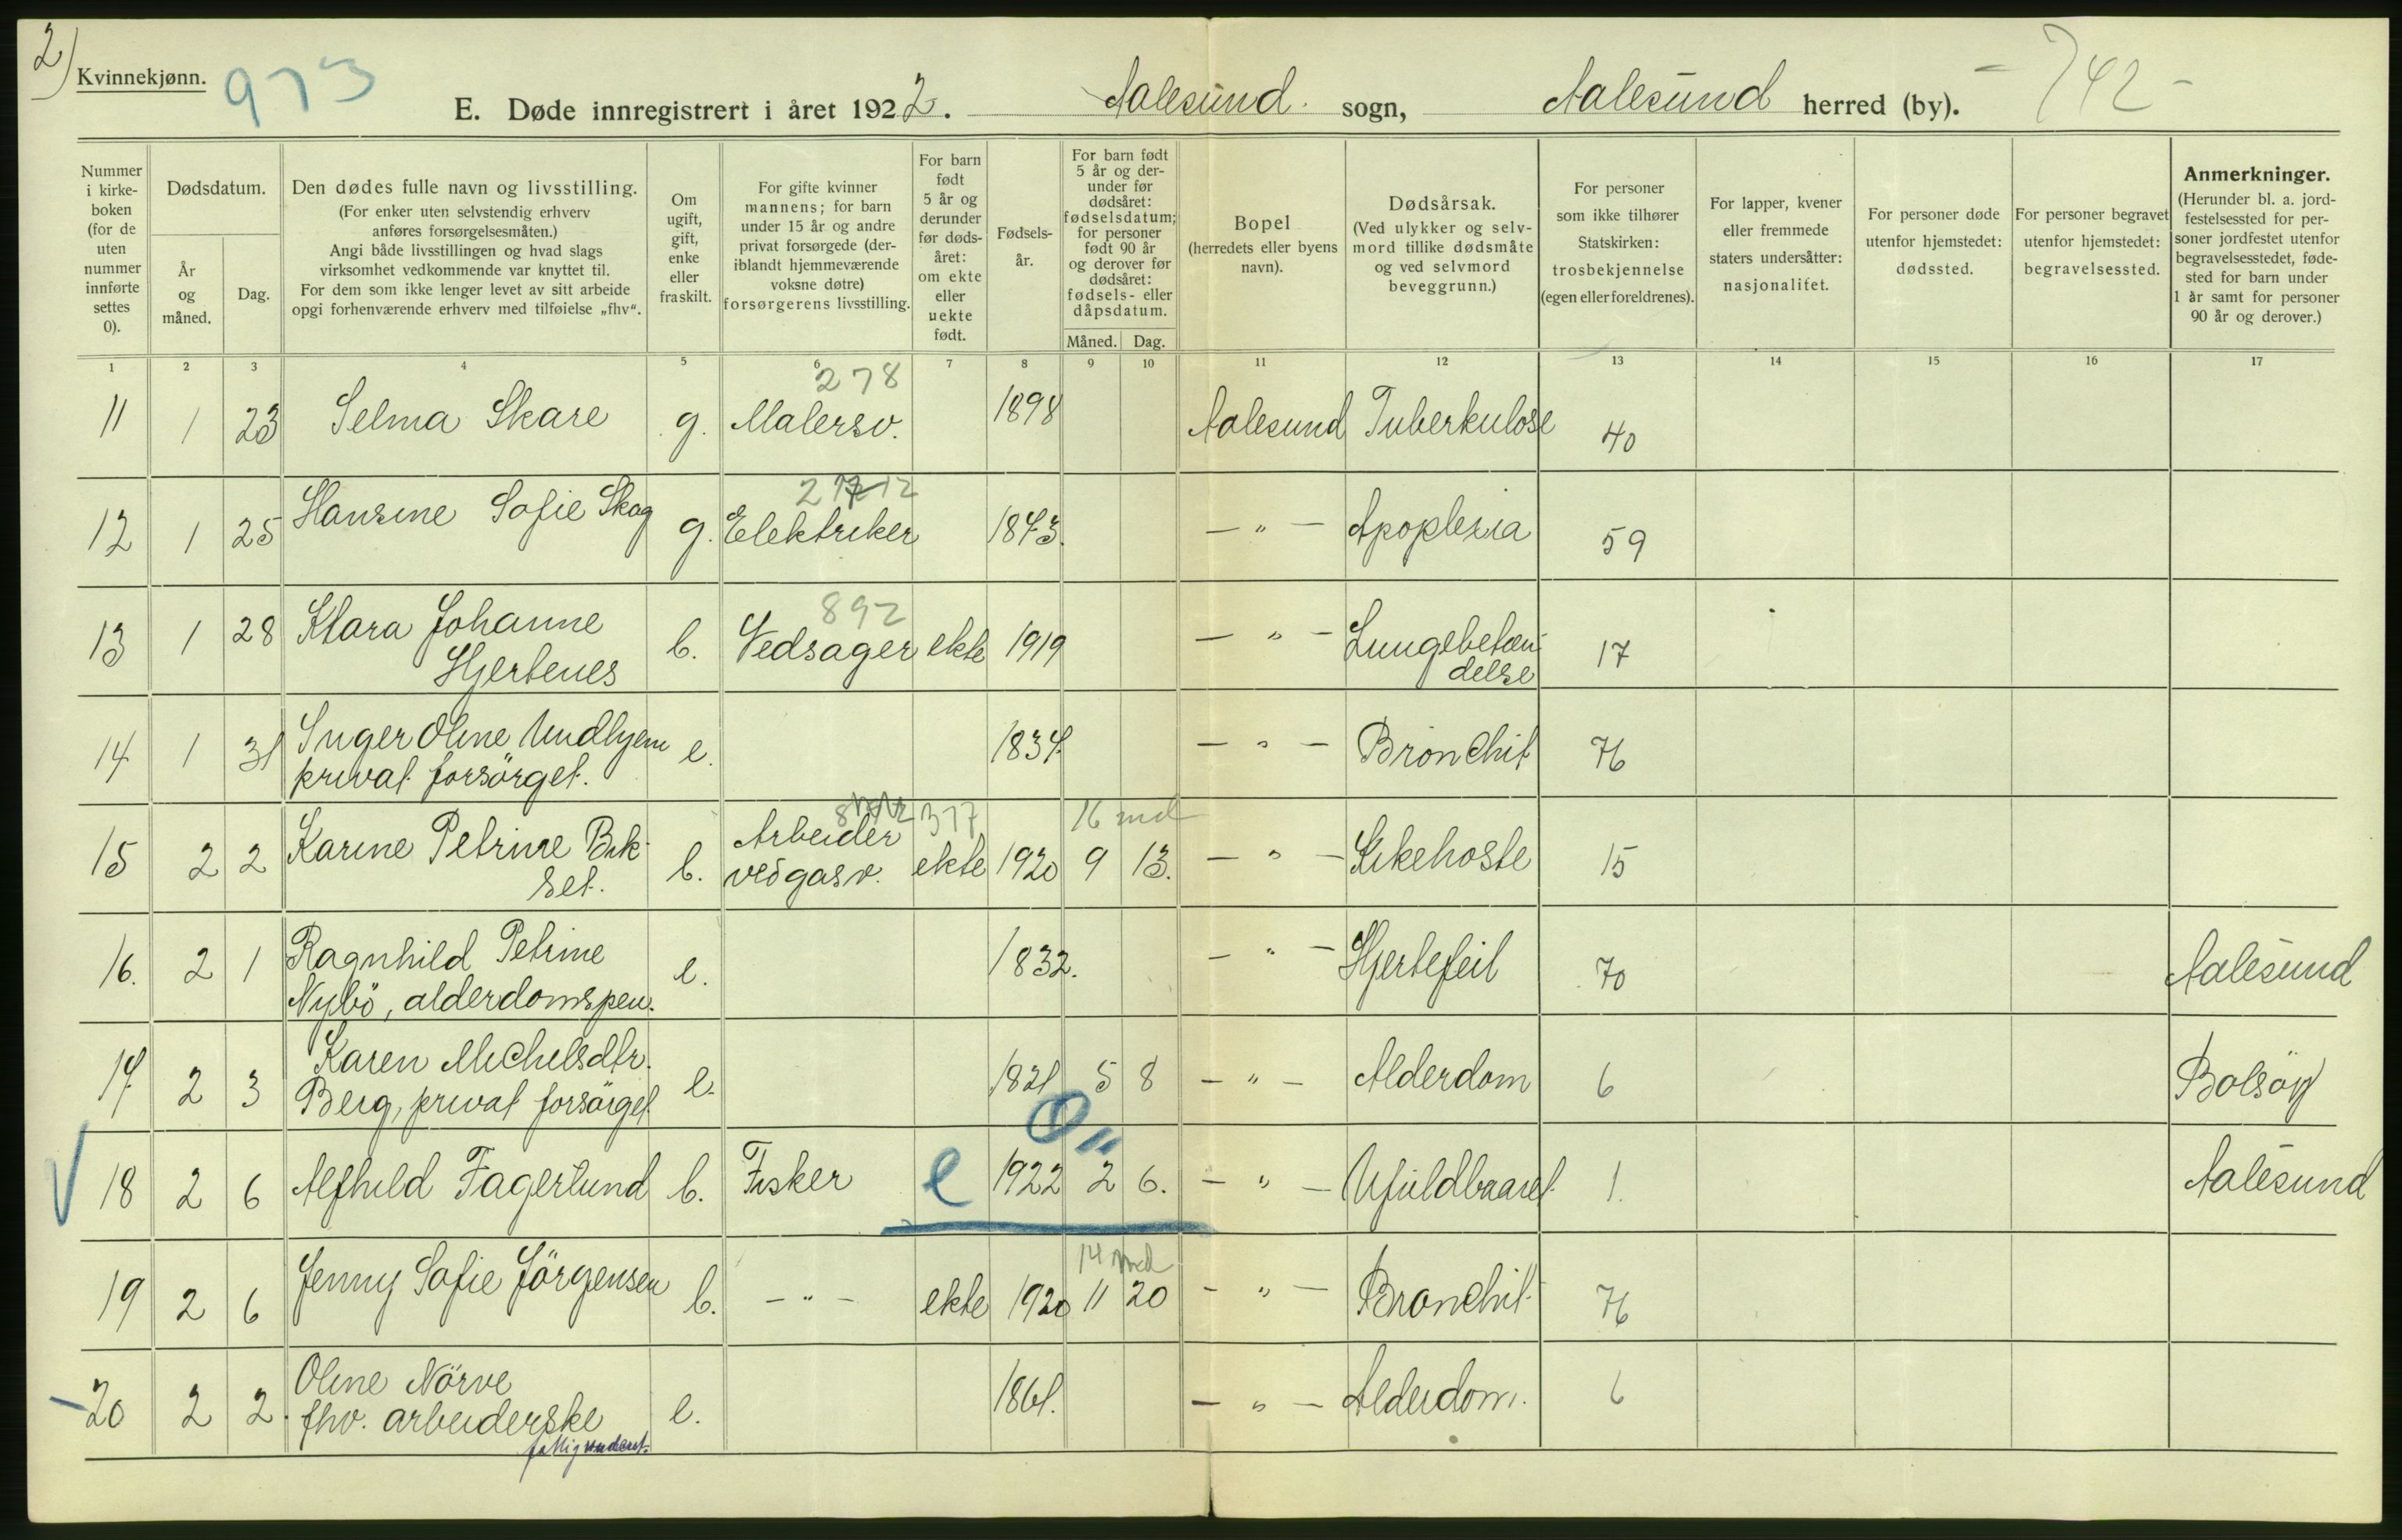 2)
Kvinnekjønn.
973
E. Døde innregistrert i året 1922. Aalesund sogn, Aalesund herred (by). - 742 -
Nummer i kirkeboken (for de uten nummer innførte settes 0).
Dødsdatum.
År og måned.
Dag.
Den dødes fulle navn og livsstilling.
(For enker uten selvstendig erhverv anføres forsørgelsesmåten.)
Angi både livsstillingen og hvad slags virksomhet vedkommende var knyttet til.
For dem som ikke lenger levet av sitt arbeide opgi forhenværende erhverv med tilføielse „fhv“.
Om ugift, gift, enke eller fraskilt.
For gifte kvinner mannens; for barn under 15 år og andre privat forsørgede (deriblandt hjemmeværende voksne døtre) forsørgerens livsstilling.
For barn født 5 år og derunder før dødsåret: om ekte eller uekte født.
Fødselsår.
For barn født 5 år og derunder før dødsåret: fødselsdatum; for personer født 90 år og derover før dødsåret: fødsels- eller dåpsdatum.
Måned.
Dag.
Bopel (herredets eller byens navn).
Dødsårsak.
(Ved ulykker og selvmord tillike dødsmåte og ved selvmord beveggrunn.)
For personer som ikke tilhører Statskirken: trosbekjennelse (egen eller foreldrenes).
For lapper, kvener eller fremmede staters undersåtter: nasjonalitet.
For personer døde utenfor hjemstedet: dødssted.
For personer begravet utenfor hjemstedet: begravelsessted.
Anmerkninger.
(Herunder bl. a. jordfestelsessted for personer jordfestet utenfor begravelsesstedet, fødested for barn under 1 år samt for personer 90 år og derover.)
1 2 3 4 5 6 7 8 9 10 11 12 13 14 15 16 17
278
11 1 23 Selma Skare g. Malersv. 1898 Aalesund Tuberkulose 40
12 1 25 Hansine Sofie Skog g. Elektriker 1843. - " - Apoplexia 59
892
13 1 28 Klara Johanne Hjertenes b. Vedsager ekte 1919 - " - Lungebetændelse 17
14 1 31 Inger Oline Undhjem privat forsörget. e. 1834. - " - Bronchit 76
317 16 md
15 2 2 Karine Petrine Brkset. b. Arbeider ved gasv. ekte 1920 9 13. - " - Kikehoste 15
16. 2 1 Ragnhild Petrine Nybö, alderdomspen. e. 1832. - " - Hjertefeil 70 Aalesund
17. 2 3 Karen Michelsdtr. Berg, privat forsörget e. 1821 5 8 - " - Alderdom 6 Bolsöy
0 "
18 2 6 Alfhild Fagerlund b. Fisker e 1922 2 6. - " - Ufuldbaaret. 1. Aalesund
14 md
19 2 6 Jenny Sofie Jörgensen b. - " - ekte 1920 11 20 - " - Bronchit 76
20 2 2. Oline Nörve fhv. arbeiderske fattigunderst. e. 1861. - " - Alderdom. 6